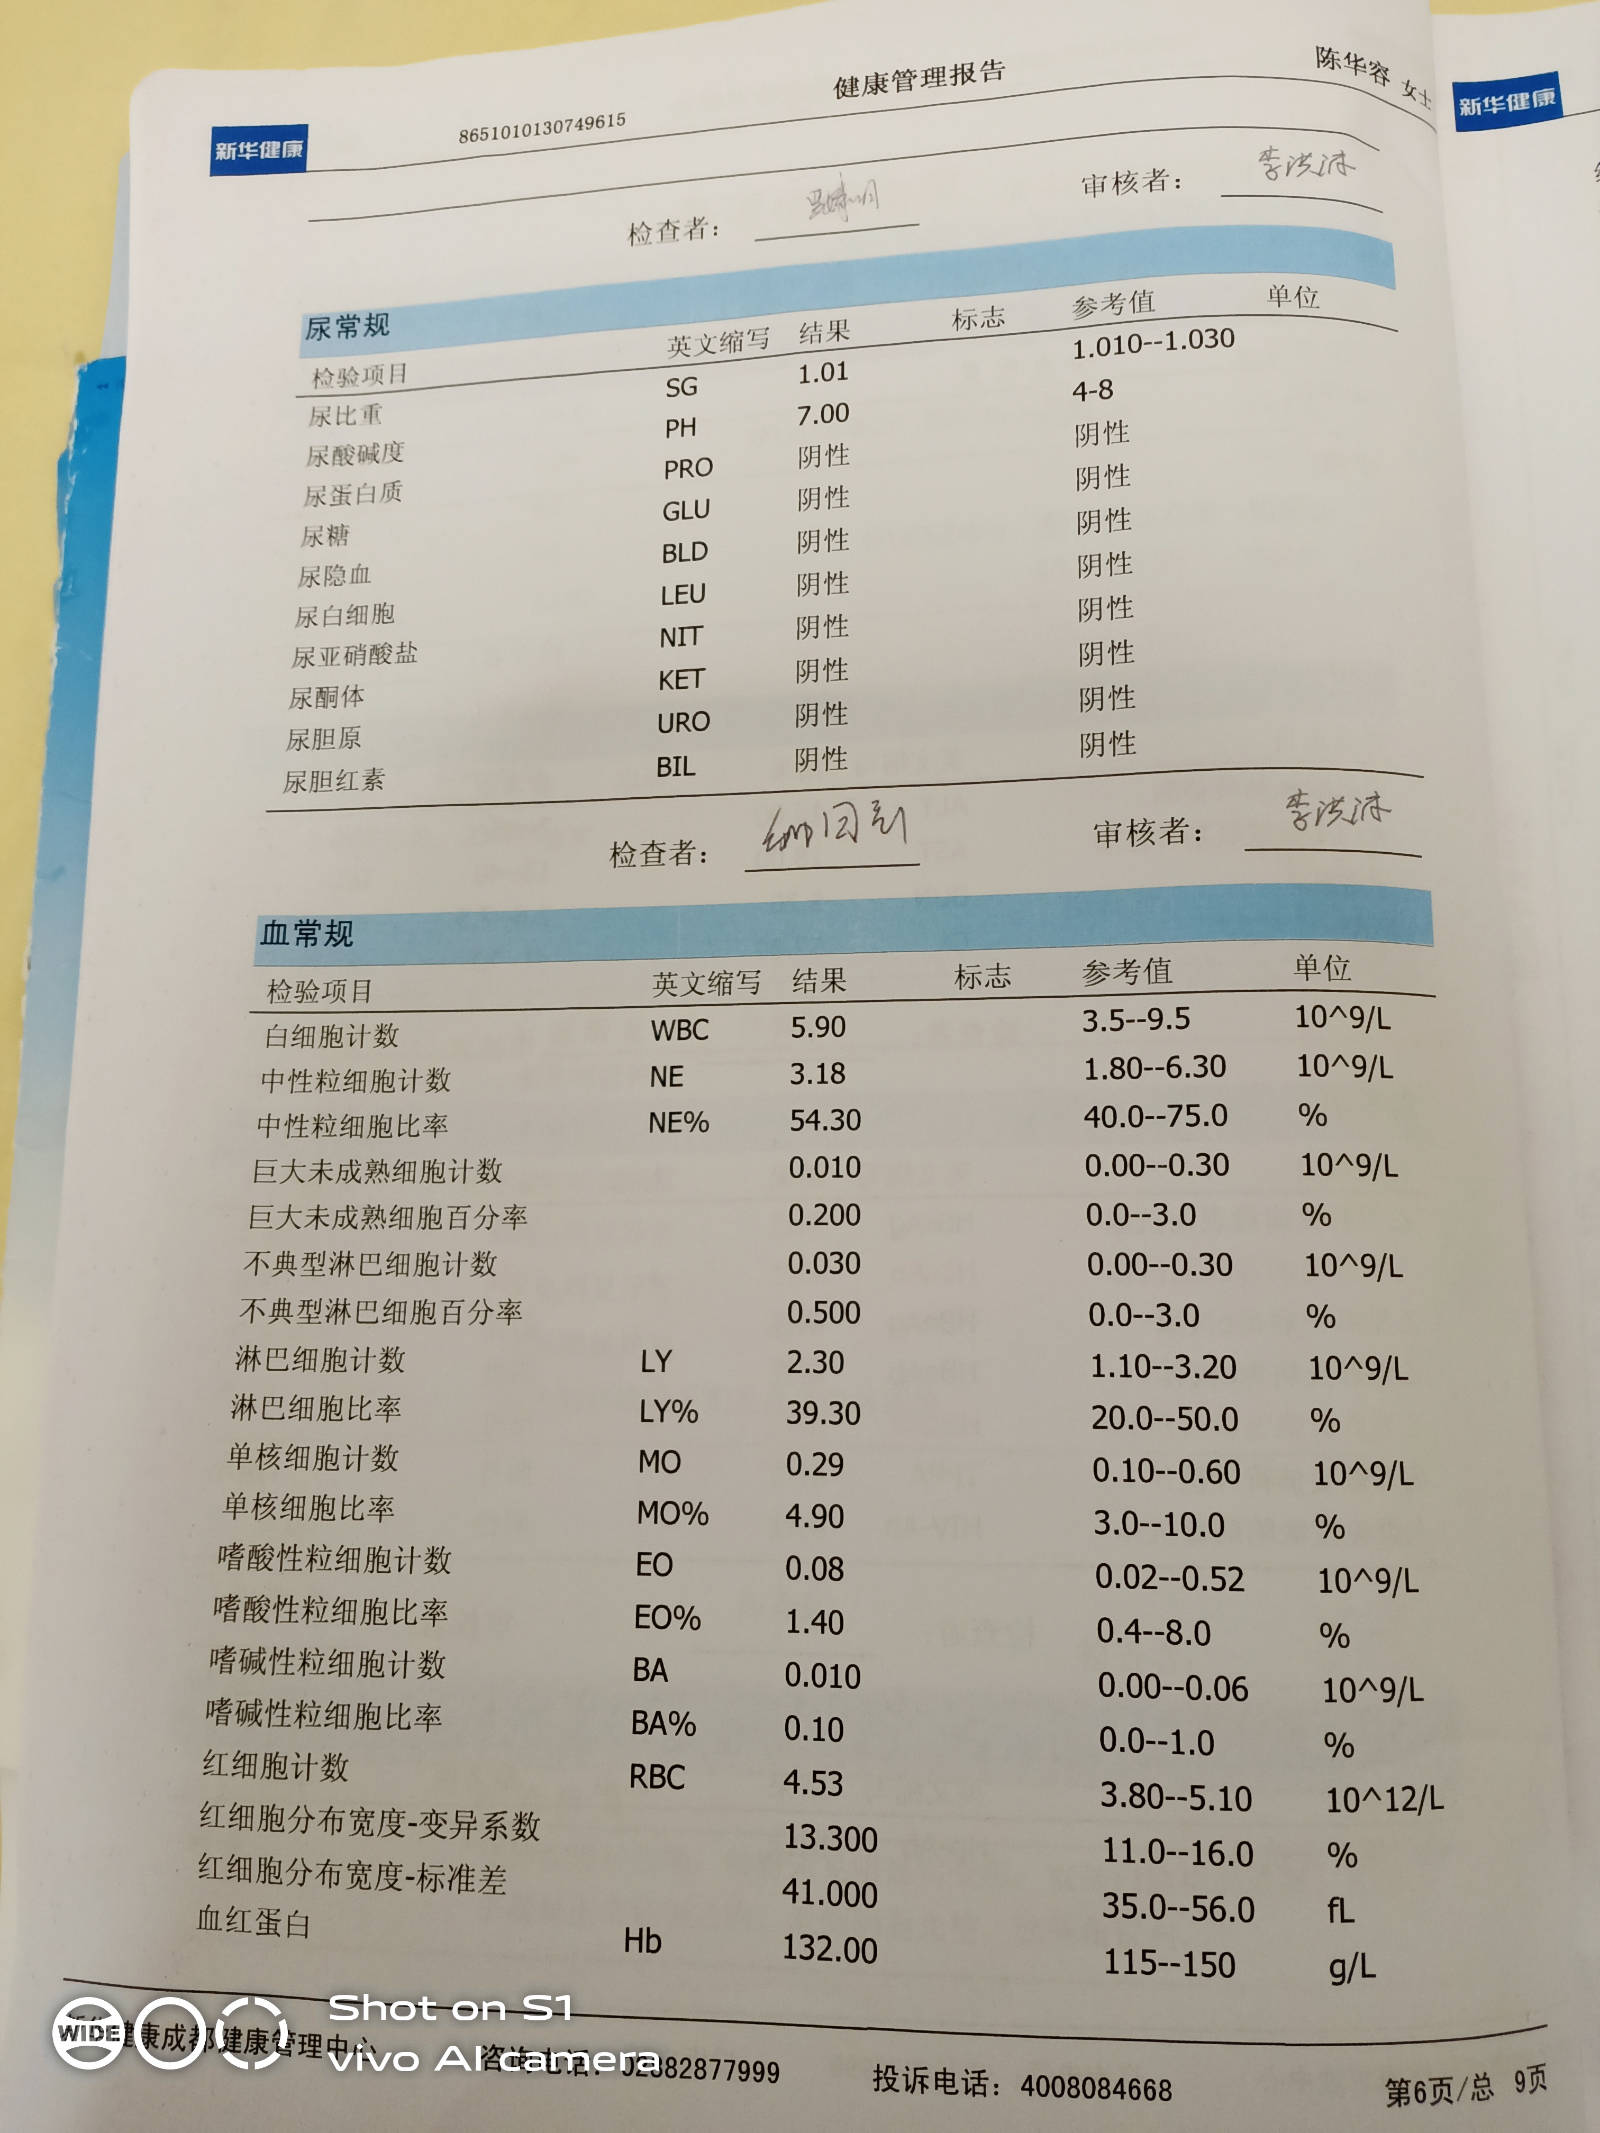 新华健康 8651010130749615 健康管理报告 陈华容 女士
新华健康
检查者： 审核者： 李洪沫
尿常规
检验项目 英文缩写 结果 标志 参考值 单位
尿比重 SG 1.01 1.010--1.030
尿酸碱度 PH 7.00 4-8
尿蛋白质 PRO 阴性 阴性
尿糖 GLU 阴性 阴性
尿隐血 BLD 阴性 阴性
尿白细胞 LEU 阴性 阴性
尿亚硝酸盐 NIT 阴性 阴性
尿酮体 KET 阴性 阴性
尿胆原 URO 阴性 阴性
尿胆红素 BIL 阴性 阴性
检查者： 审核者： 李洪沫
血常规
检验项目 英文缩写 结果 标志 参考值 单位
白细胞计数 WBC 5.90 3.5--9.5 10^9/L
中性粒细胞计数 NE 3.18 1.80--6.30 10^9/L
中性粒细胞比率 NE% 54.30 40.0--75.0 %
巨大未成熟细胞计数 0.010 0.00--0.30 10^9/L
巨大未成熟细胞百分率 0.200 0.0--3.0 %
不典型淋巴细胞计数 0.030 0.00--0.30 10^9/L
不典型淋巴细胞百分率 0.500 0.0--3.0 %
淋巴细胞计数 LY 2.30 1.10--3.20 10^9/L
淋巴细胞比率 LY% 39.30 20.0--50.0 %
单核细胞计数 MO 0.29 0.10--0.60 10^9/L
单核细胞比率 MO% 4.90 3.0--10.0 %
嗜酸性粒细胞计数 EO 0.08 0.02--0.52 10^9/L
嗜酸性粒细胞比率 EO% 1.40 0.4--8.0 %
嗜碱性粒细胞计数 BA 0.010 0.00--0.06 10^9/L
嗜碱性粒细胞比率 BA% 0.10 0.0--1.0 %
红细胞计数 RBC 4.53 3.80--5.10 10^12/L
红细胞分布宽度-变异系数 13.300 11.0--16.0 %
红细胞分布宽度-标准差 41.000 35.0--56.0 fL
血红蛋白 Hb 132.00 115--150 g/L
新华健康成都健康管理中心 咨询电话：02882877999 投诉电话：4008084668 第6页/总 9页
WIDE
Shot on S1
vivo AI camera